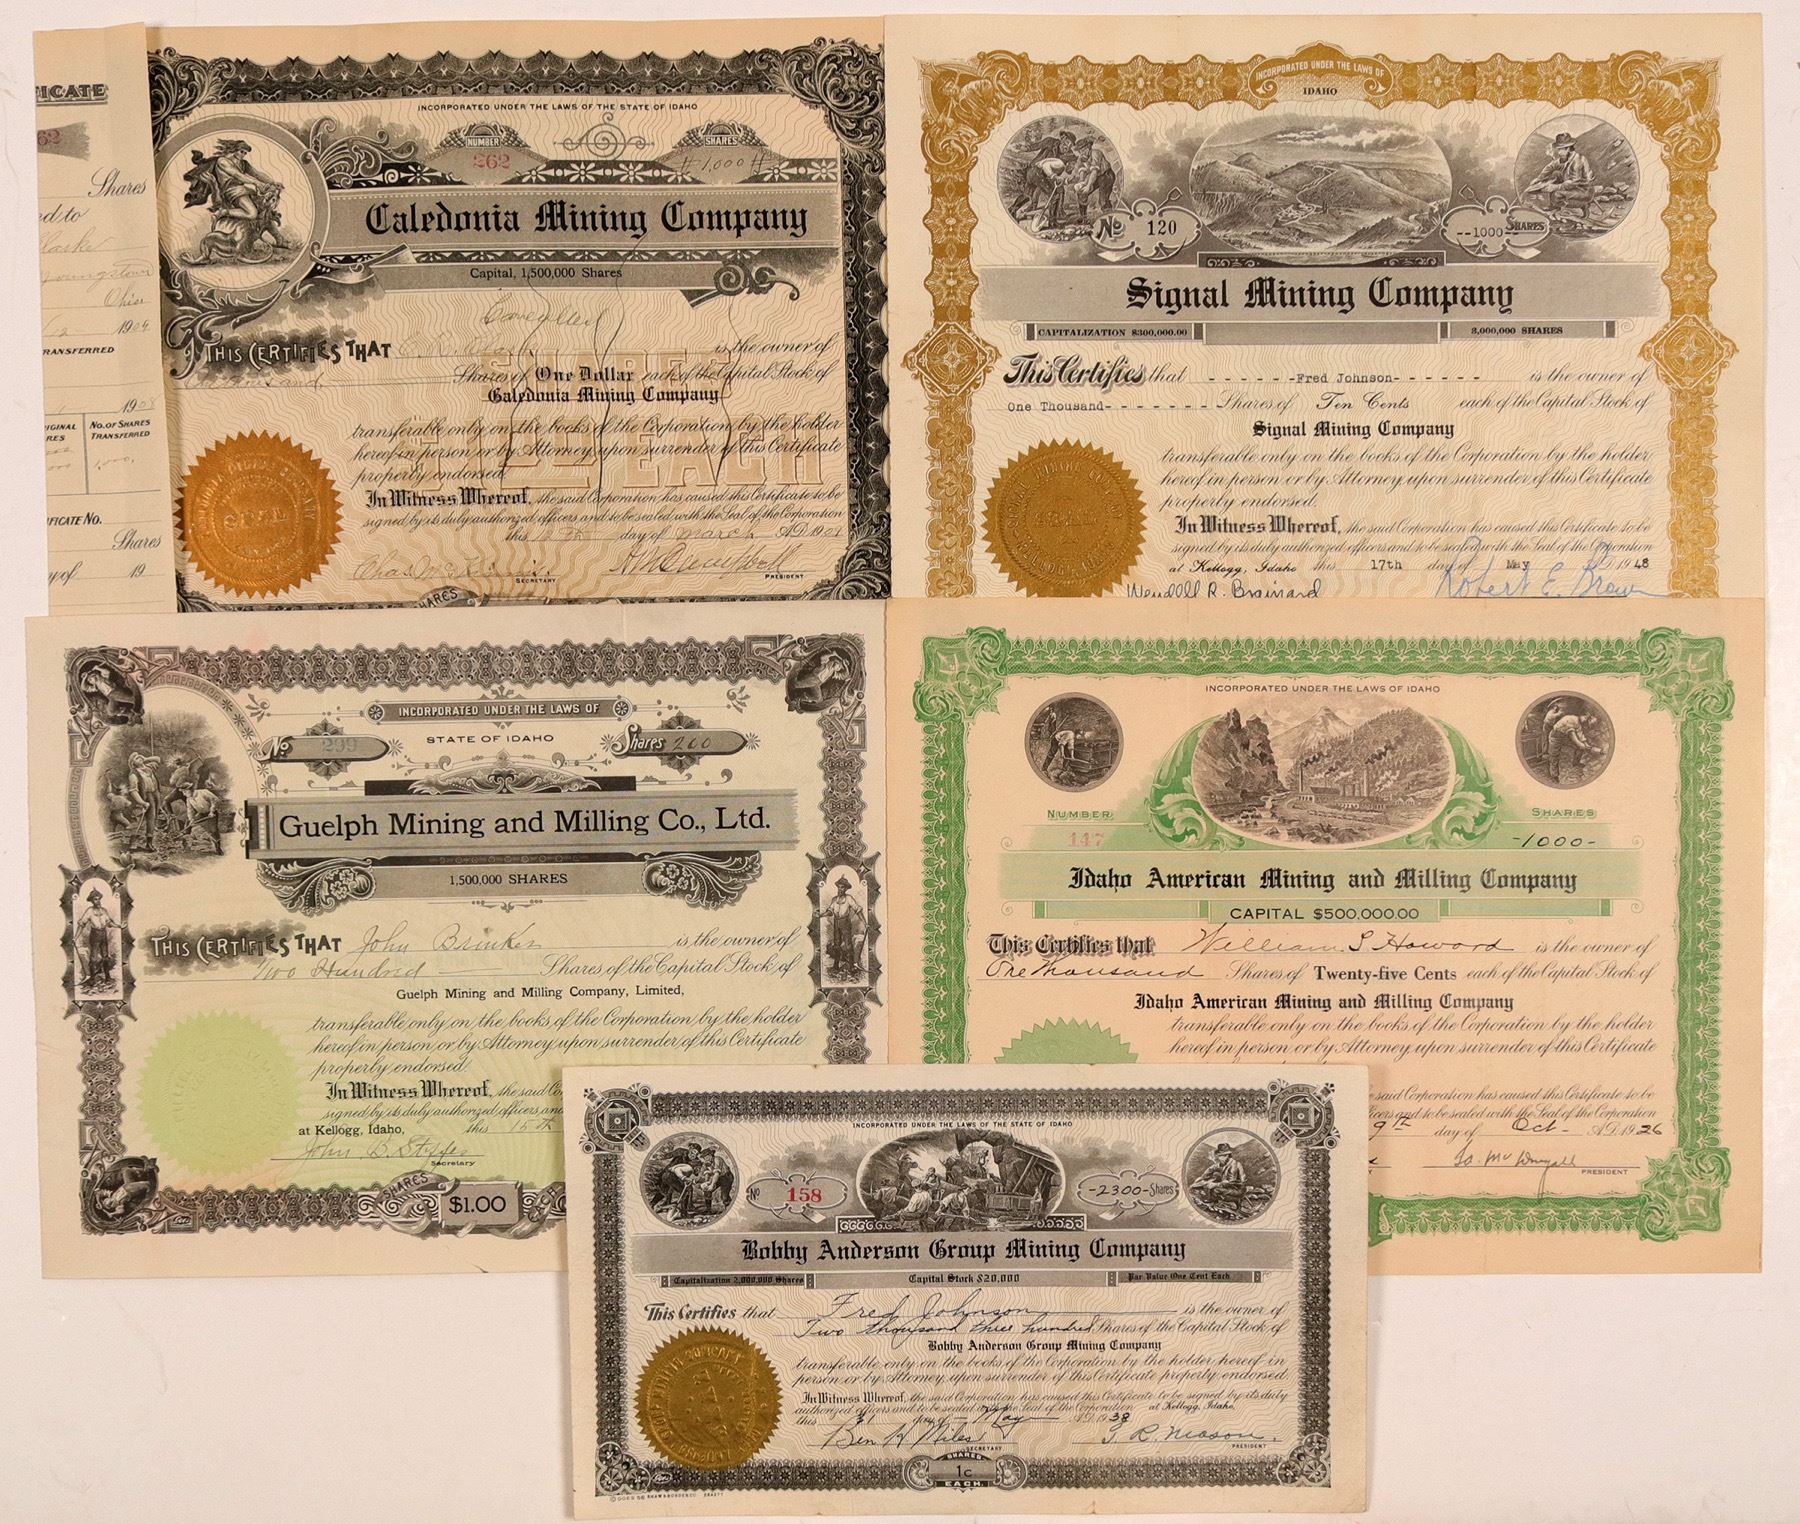 ICATE
62
Shares
d to
Youngstown
Ohio
12 1909
RANSFERRED
1908
IGINAL
RES
No. OF SHARES
TRANSFERRED
1,000.
IFICATE No.
Shares
y of 19
INCORPORATED UNDER THE LAWS OF THE STATE OF IDAHO
NUMBER
262
SHARES
#1,000#
Caledonia Mining Company
Capital, 1,500,000 Shares
Cancelled
THIS CERTIFIES THAT is the owner of
One Thousand Shares of One Dollar each of the Capital Stock of
Caledonia Mining Company
transferable only on the books of the Corporation by the holder
hereof in person or by Attorney upon surrender of this Certificate
properly endorsed.
In Witness Whereof, the said Corporation has caused this Certificate to be
signed by its duly authorized officers and to be sealed with the Seal of the Corporation
this 12th day of March A.D. 190
SECRETARY
PRESIDENT
SHARES
EACH
SHARES
INCORPORATED UNDER THE LAWS OF
IDAHO
No 120
--1000-- SHARES
Signal Mining Company
CAPITALIZATION $300,000.00
3,000,000 SHARES
This Certifies that - - - - - -Fred Johnson- - - - - - is the owner of
One Thousand- - - - - - - - Shares of Ten Cents each of the Capital Stock of
Signal Mining Company
transferable only on the books of the Corporation by the holder
hereof in person or by Attorney upon surrender of this Certificate
properly endorsed.
In Witness Whereof, the said Corporation has caused this Certificate to be
signed by its duly authorized officers and to be sealed with the Seal of the Corporation
at Kellogg, Idaho this 17th day of May A.D. 1948
Wendell R. Brainard Robert E. Brown
INCORPORATED UNDER THE LAWS OF
STATE OF IDAHO
No 299
Shares 200
Guelph Mining and Milling Co., Ltd.
1,500,000 SHARES
THIS CERTIFIES THAT John Brinker is the owner of
Two Hundred Shares of the Capital Stock of
Guelph Mining and Milling Company, Limited,
transferable only on the books of the Corporation by the holder
hereof in person or by Attorney upon surrender of this Certificate
properly endorsed.
In Witness Whereof, the said Co
signed by its duly authorized officers and
at Kellogg, Idaho, this 15th
John B.
Secretary
SHARES
$1.00
EACH
INCORPORATED UNDER THE LAWS OF IDAHO
NUMBER
147
SHARES
-1000-
Idaho American Mining and Milling Company
CAPITAL $500,000.00
This Certifies that William S Howard is the owner of
One thousand Shares of Twenty-five Cents each of the Capital Stock of
Idaho American Mining and Milling Company
transferable only on the books of the Corporation by the holder
hereof in person or by Attorney upon surrender of this Certificate
e said Corporation has caused this Certificate to be
ficers and to be sealed with the Seal of the Corporation
9th day of Oct- A.D. 1926
PRESIDENT
INCORPORATED UNDER THE LAWS OF THE STATE OF IDAHO
No 158
-2300- Shares
Bobby Anderson Group Mining Company
Capitalization 2,000,000 Shares
Capital Stock $20,000
Par Value One Cent Each
This Certifies that Fred Johnson is the owner of
Two thousand three hundred Shares of the Capital Stock of
Bobby Anderson Group Mining Company
transferable only on the books of the Corporation by the holder hereof in
person or by Attorney upon surrender of this Certificate properly endorsed.
In Witness Whereof, the said Corporation has caused this Certificate to be signed by its duly
authorized officers and to be sealed with the Seal of the Corporation at Kellogg, Idaho,
this 31 day of May A.D. 1938
Ben H Miles
SECRETARY
G. R. Mason.
PRESIDENT
SHARES
1c
EACH